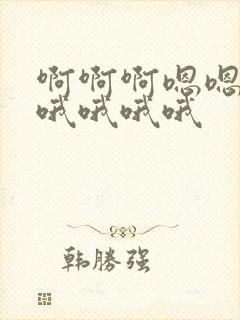 啊啊啊嗯嗯
哦哦哦哦
韩勝强